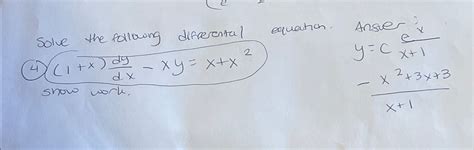 Solve the following differental equation. Answer:
④ (1+x) dy/dx - xy = x+x²
show work.
y = C e^x/x+1
- x²+3x+3/x+1